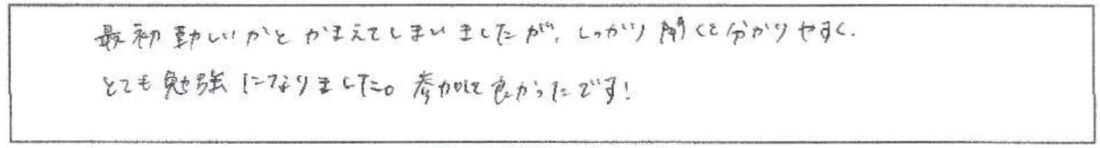 最初難しいかとかまえてしまいましたが、しっかり聞くと分かりやすく、
とても勉強になりました。参加して良かったです!